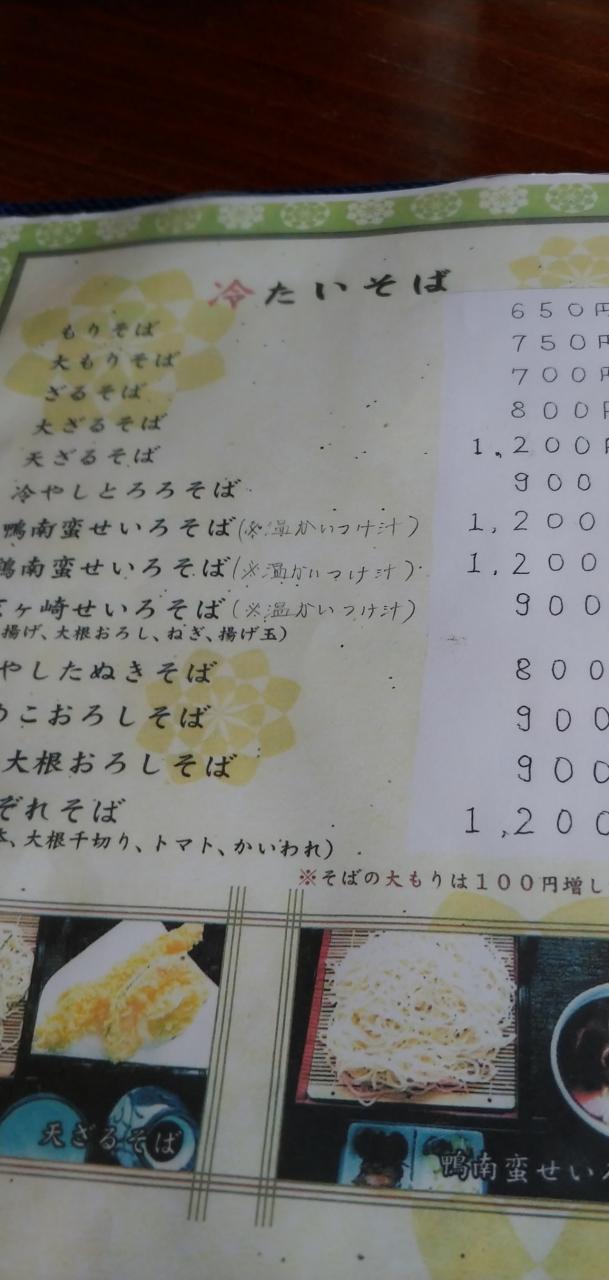 冷たいそば
もりそば 650円
大もりそば 750円
ざるそば 700円
大ざるそば 800円
天ざるそば 1,200円
冷やしとろろそば 900
鴨南蛮せいろそば(※温かいつけ汁) 1,200
鶏南蛮せいろそば(※温かいつけ汁) 1,200
ヶ崎せいろそば(※温かいつけ汁) 900
揚げ、大根おろし、ねぎ、揚げ玉)
やしたぬきそば 800
めこおろしそば 900
大根おろしそば 900
ぞれそば 1,200
、大根千切り、トマト、かいわれ)
※そばの大もりは100円増し
天ざるそば
鴨南蛮せいろ